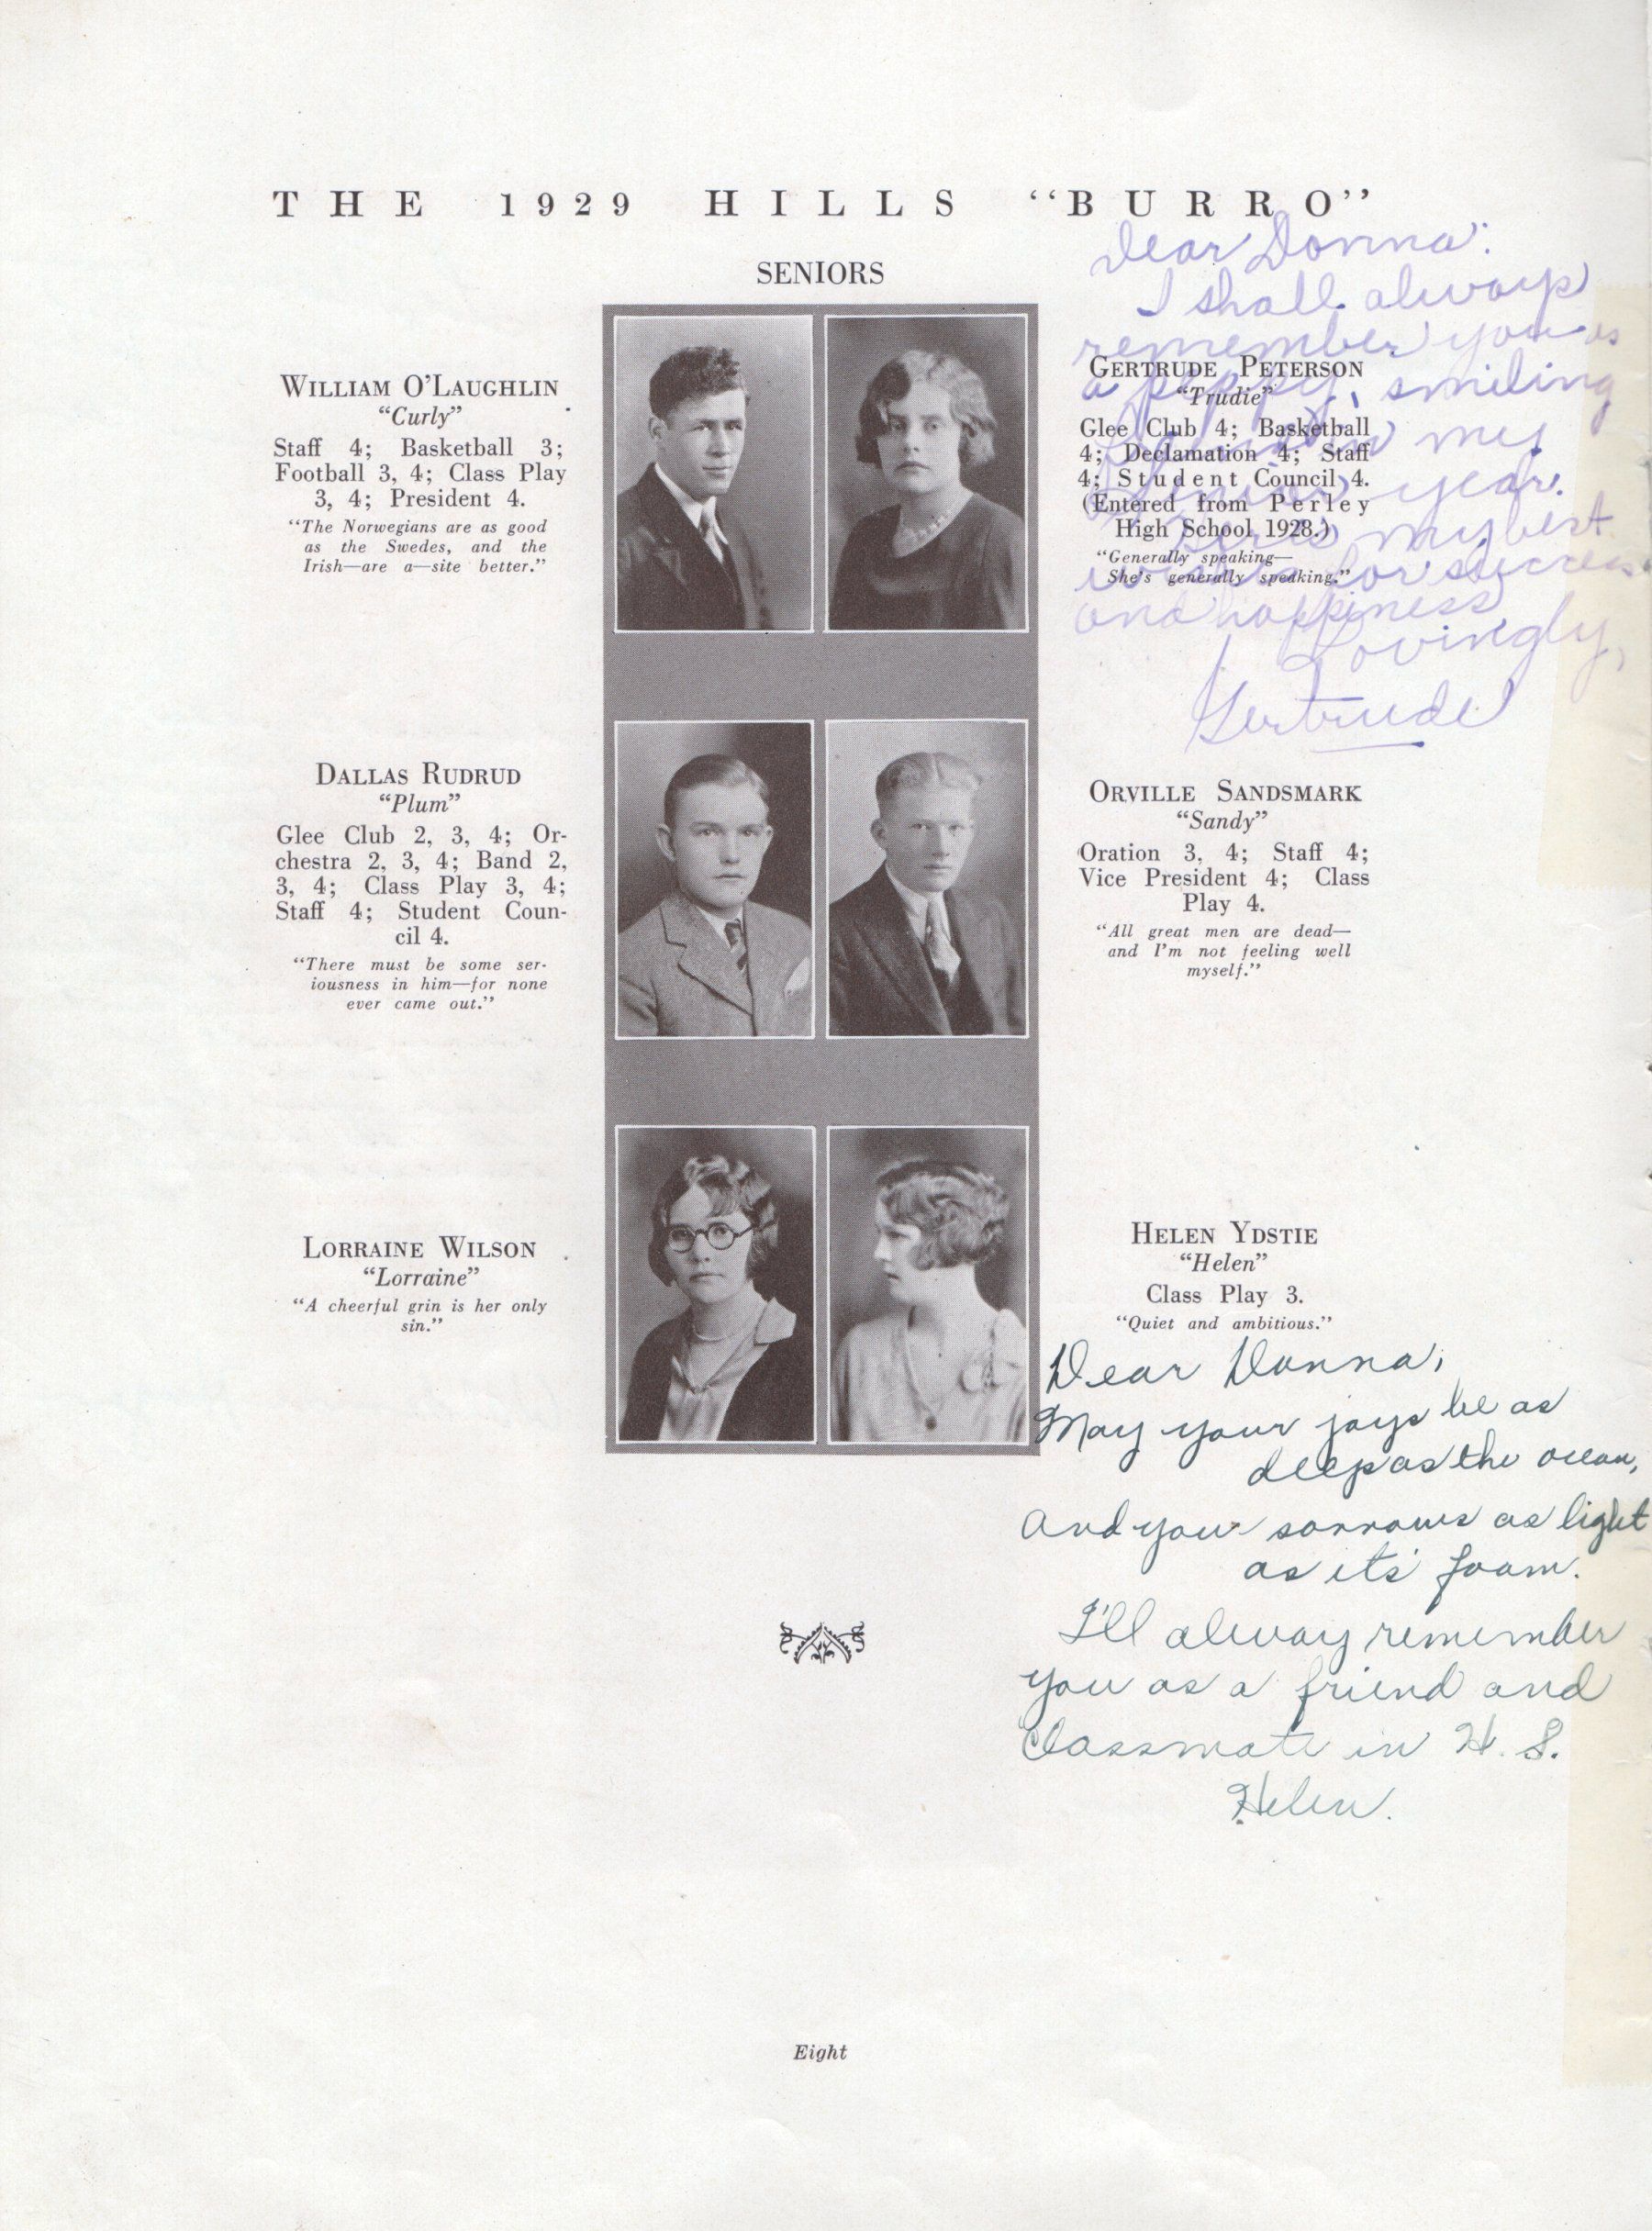 THE 1929 HILLS "BURRO"
SENIORS
WILLIAM O'LAUGHLIN
"Curly"
Staff 4; Basketball 3;
Football 3, 4; Class Play
3, 4; President 4.
"The Norwegians are as good
as the Swedes, and the
Irish—are a—site better."
GERTRUDE PETERSON
"Trudie"
Glee Club 4; Basketball
4; Declamation 4; Staff
4; Student Council 4.
(Entered from Perley
High School 1928.)
"Generally speaking—
She's generally speaking."
Dear Donna:
I shall always
remember you as
a peppy, smiling
in my
Senior year.
my best
wishes for success
and happiness
Lovingly,
Gertrude
DALLAS RUDRUD
"Plum"
Glee Club 2, 3, 4; Or-
chestra 2, 3, 4; Band 2,
3, 4; Class Play 3, 4;
Staff 4; Student Coun-
cil 4.
"There must be some ser-
iousness in him—for none
ever came out."
ORVILLE SANDSMARK
"Sandy"
Oration 3, 4; Staff 4;
Vice President 4; Class
Play 4.
"All great men are dead—
and I'm not feeling well
myself."
LORRAINE WILSON
"Lorraine"
"A cheerful grin is her only
sin."
HELEN YDSTIE
"Helen"
Class Play 3.
"Quiet and ambitious."
Dear Donna,
May your joys be as
deep as the ocean,
And your sorrows as light
as it's foam.
I'll alway remember
you as a friend and
Classmate in H. S.
Helen.
Eight